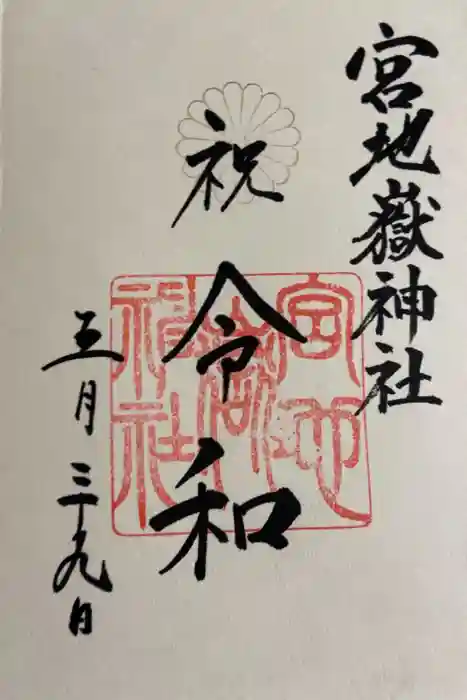 宮地嶽神社
祝
令和
五月二十九日
宮地
嶽
神社